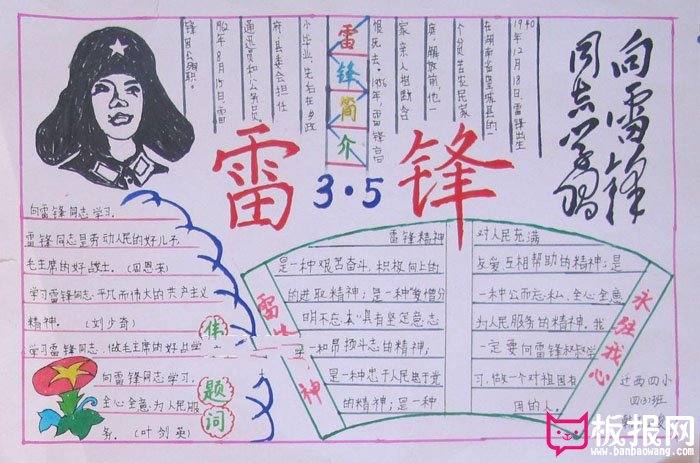 1940
年12月18日,雷锋出生
在湖南省望城县的一
个贫苦农民家
庭,解放前,他一
家亲人相继含
恨死去。1956年,雷锋高
小毕业,先后在乡政
府、县委会担任
通迅员和公务员
年8月15日,雷
锋因公殉职。
雷锋简介
雷锋
3·5
向雷锋
同志学习
向雷锋同志学习。
雷锋同志是劳动人民的好儿子,
毛主席的好战士。(周恩来)
学习雷锋同志平凡而伟大的共产主义
精神。(刘少奇)
学习雷锋同志,做毛主席的好战士
向雷锋同志学习,
全心全意为人民服
务。(叶剑英)
伟
题
词
雷
神
雷锋精神
是一种艰苦奋斗,积极向上的
的进取精神;是一种"爱憎分
明不忘本"具有坚定意志
一和昂扬斗志的精神;
是一种忠于人民忠于党
的精神;是一种
对人民充满
友爱互相帮助的精神;是
一种公而忘私,全心全意
为人民服务的精神。我
一定要向雷锋叔叔学
习,做一个对祖国有
用的人。
永驻我心
迁西四小
四(3)班
板报网
www.banbaowang.com